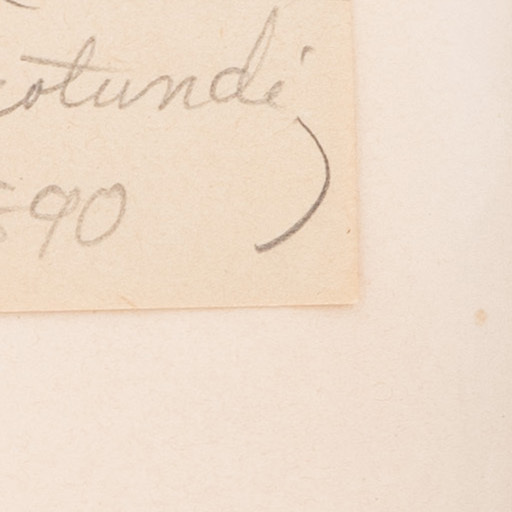 rotundi
890 )